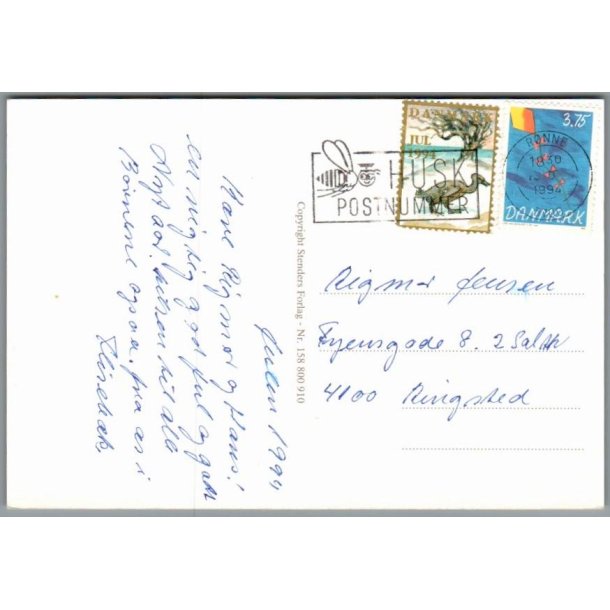 Julen 1994
Kære Rigmor og Hans!
en rigtig god jul og godt
Nyt aar. hilsen til alle
Børnene ogsaa. fra os i
DANMARK
JUL
1994
3.75
DANMARK
RØNNE
1994
HUSK
POSTNUMMER
Copyright Stenders Forlag - Nr. 158 800 910
Rigmor Jensen
Fyensgade 8. 2 Sal th
4100 Ringsted